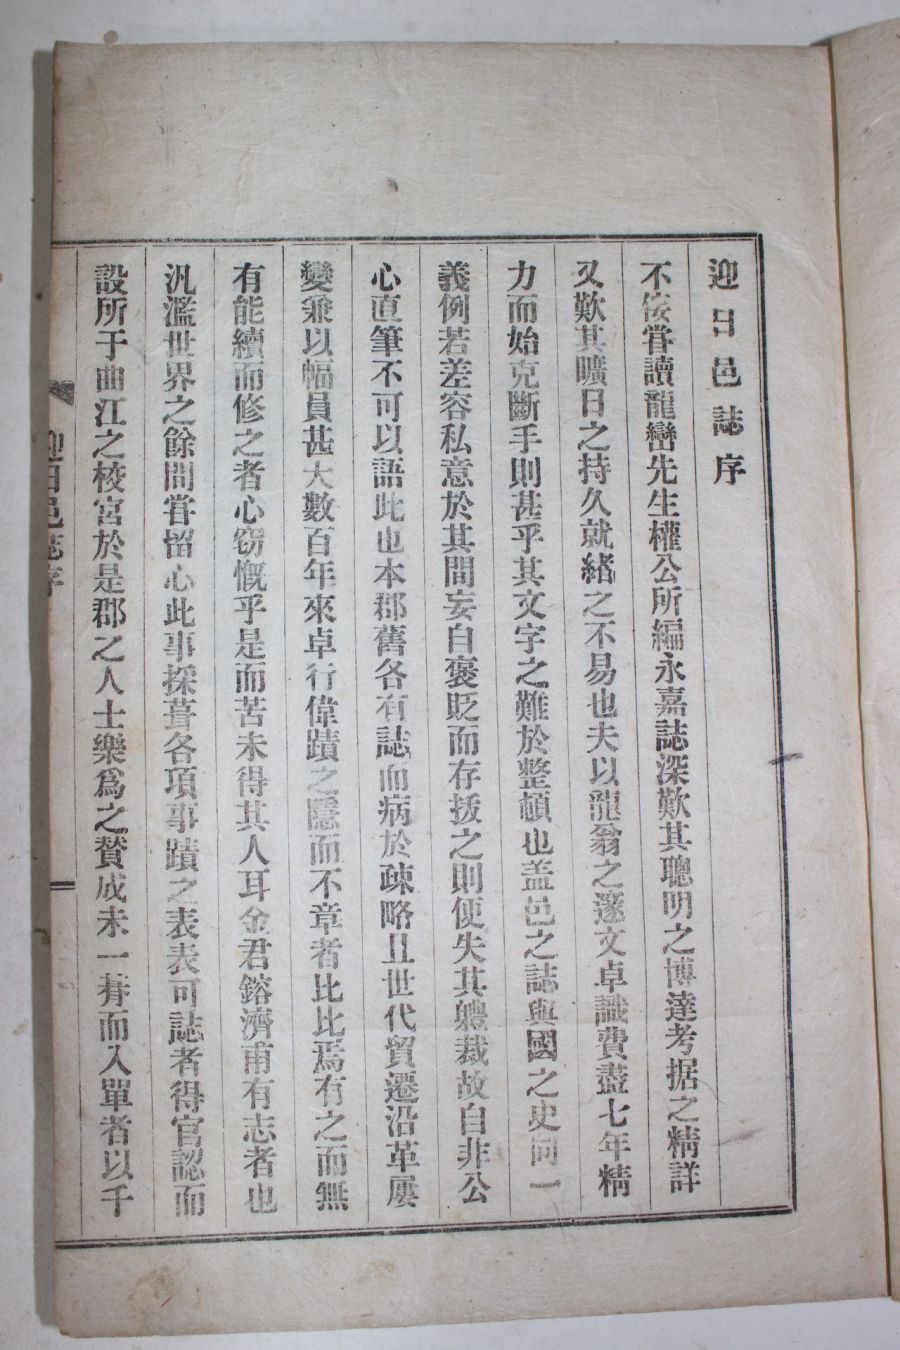 迎日邑誌序
不佞嘗讀龍巒先生權公所編永嘉誌深歎其聰明之博達考据之精詳
又歎其曠日之持久就緖之不易也夫以龍翁之邃文卓識費盡七年精
力而始克斷手則甚乎其文字之難於整頓也盖邑之誌與國之史同一
義例若差容私意於其間妄自褒貶而存拔之則便失其軆裁故自非公
心直筆不可以語此也本郡舊各有誌而病於疎略且世代貿遷沿革屢
變兼以幅員甚大數百年來卓行偉蹟之隱而不章者比比焉有之而無
有能續而修之者心窃慨乎是而苦未得其人耳金君鎔濟甫有志者也
汎濫世界之餘間嘗留心此事採葺各項事蹟之表表可誌者得官認而
設所于曲江之校宮於是郡之人士樂爲之賛成未一朞而入單者以千
迎日邑誌序